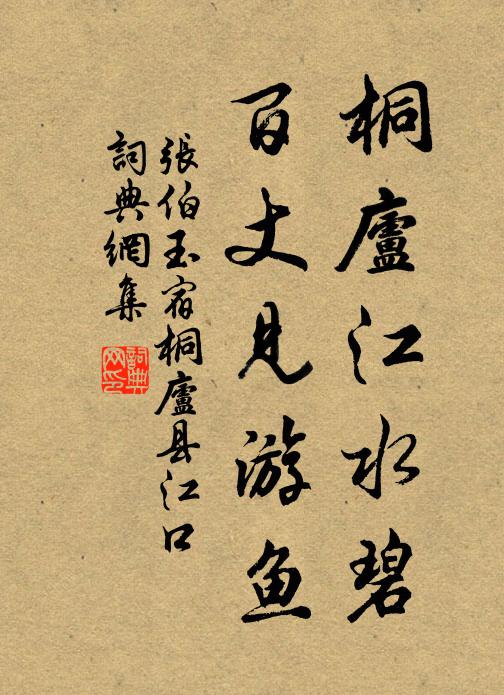 桐廬江水碧
百丈見游魚
張伯玉宿桐廬县江口
詞典網集
詞典网印